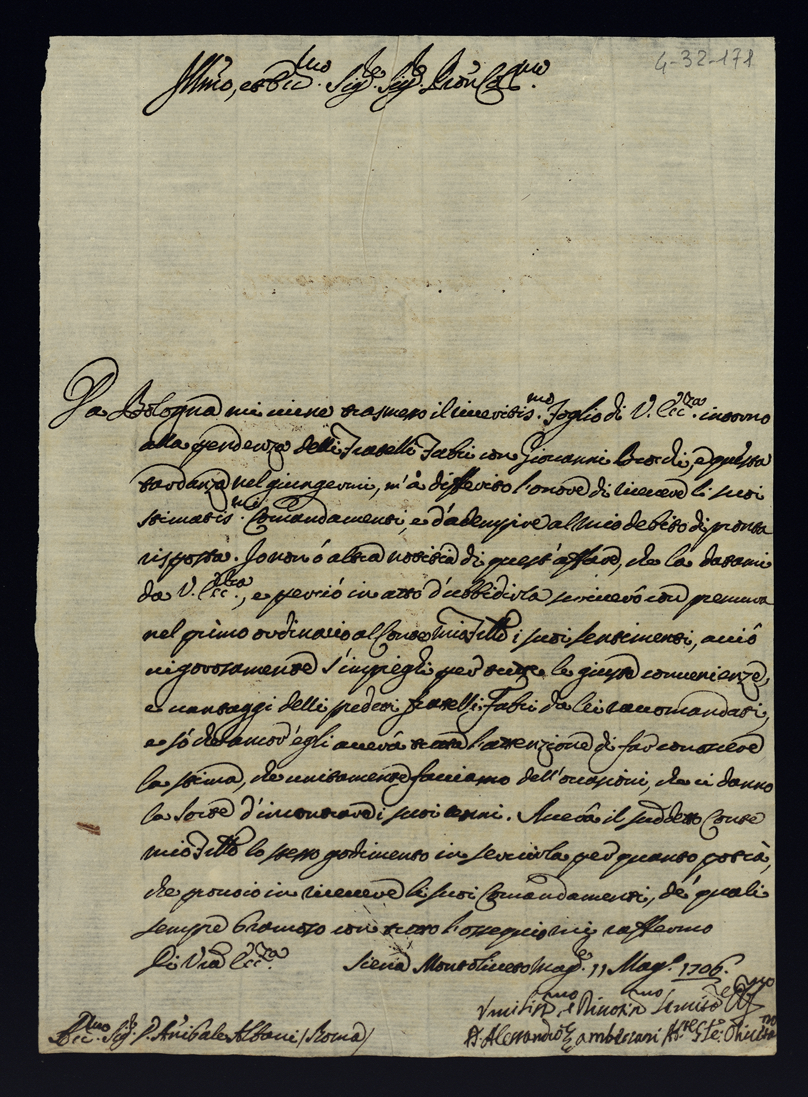 4-32-171
Illmo, et Ecc.mo Sig.re Sig.re Pron Col.mo
Da Bologna mi viene trasmesso il riveritis.mo foglio di V. Ecc.za intorno
alla pendenza delli Fratelli Fabri con Giovanni e questa
tardanza nel giungermi, m'à differito l'onore di ricevere li suoi
stimatis.mi Comandamenti, e d'adempire al mio debito di pronta
risposta. Io non ò altra notitia di quest'affare, che la datami
da V. Ecc.za, e perciò in atto d'ubbidirla scriverò con premura
nel primo ordinario al Conte mio Fratello i suoi sentimenti, acciò
vigorosamente s'impieghi per tutte le giuste convenienze,
e vantaggi delli predetti fratelli Fabri da lei raccomandati,
e sò che ancor'egli avrà tutta l'attenzione di far conoscere
la stima, che unitamente facciamo dell'occasioni, che ci danno
la sorte d'incontrare i suoi cenni. Avrà il suddetto Conte
mio Fratello lo stesso godimento in servirla per quanto potrà,
che provo io in ricevere li suoi Comandamenti, de' quali
sempre bramoso con tutto l'ossequio mi raffermo
Di V.ra Ecc.za Siena Montoliveto Mag.re 11 Mag.o 1706.
Umilis.mo, e Divotis.mo Servitore
D. Alessandro Zambeccari
Ecc.mo Sig.r D. Anibale Albani (Roma)